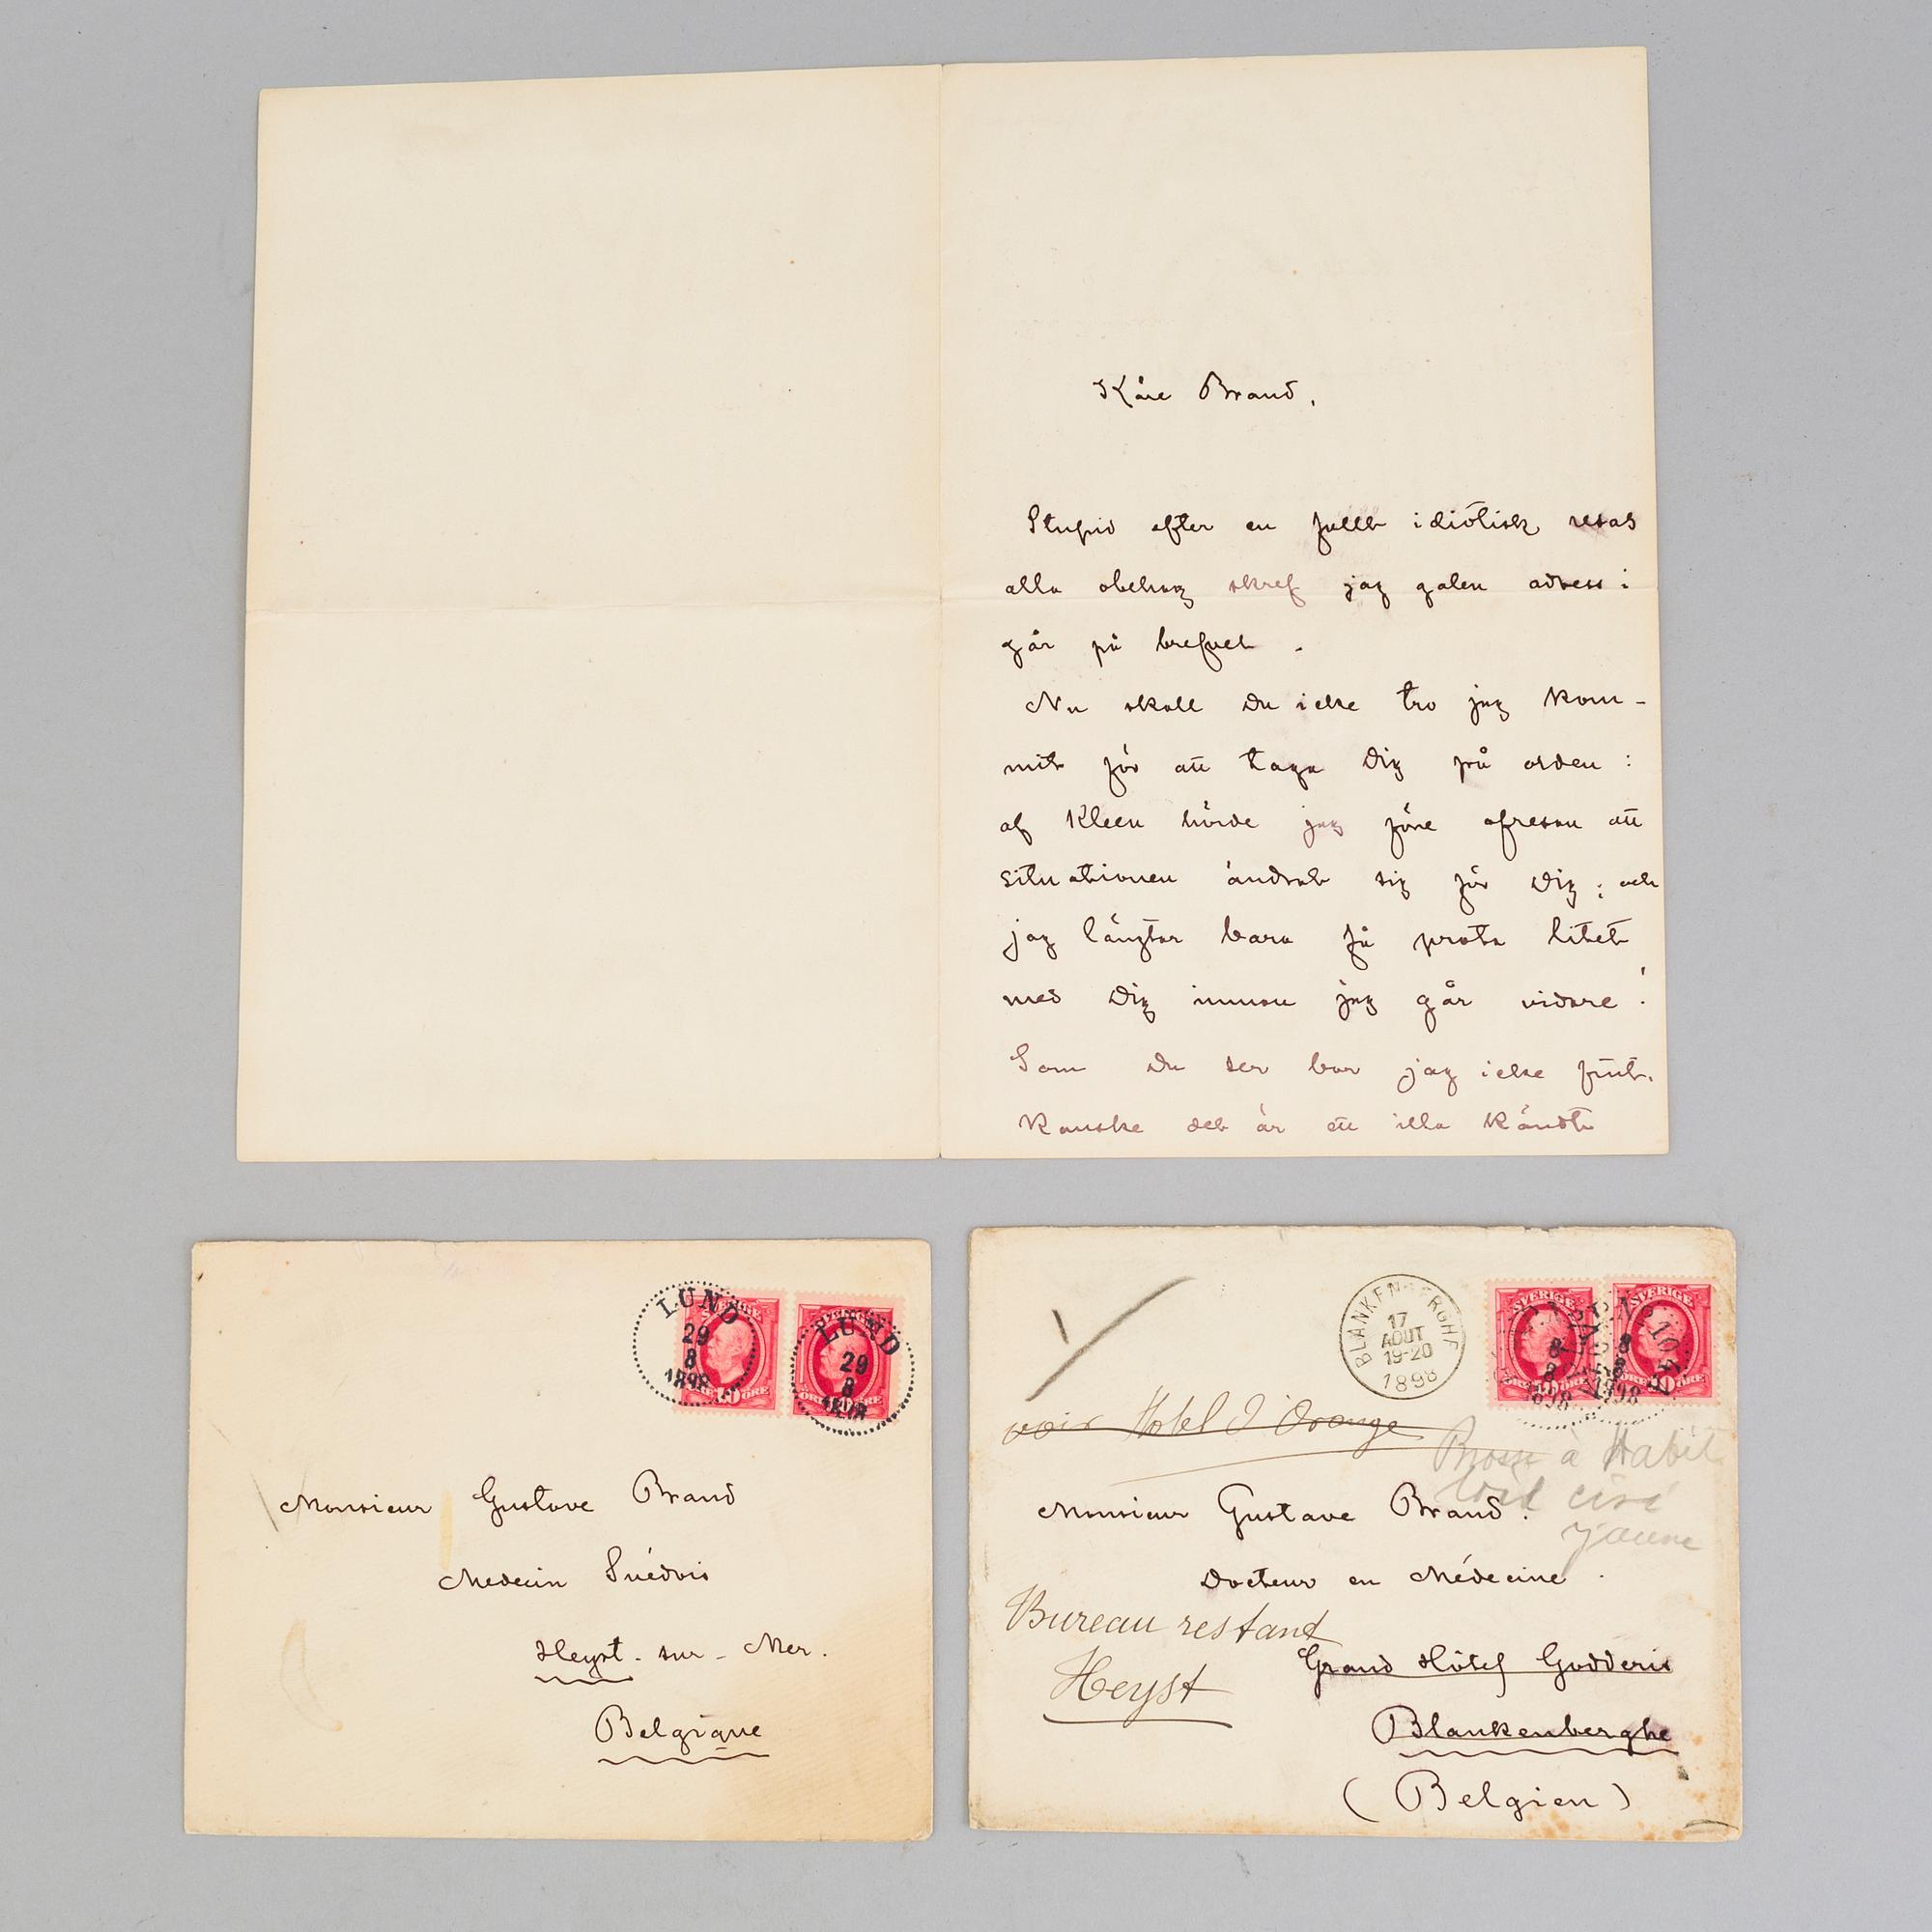 Käre Brand,
Stupid efter en fullt idiotisk resas
alla obehag skref jag galen adress i
går på brefvet.
Nu skall Du icke tro jag kom-
mit för att taga Dig på orden:
af Kleen hörde jag före afresan att
situationen ändrat sig för Dig; och
jag längtar bara få prata litet
med Dig innan jag går vidare!
Som Du ser har jag icke fått.
Kanske det är ett illa kändt
LUND
29
8
1898
LUND
29
8
1898
Monsieur Gustave Brand
Medecin Suédois
Heyst-sur-Mer.
Belgique
BLANKENBERGHE
17
AOUT
19-20
1898
SVERIGE
SVERIGE
voir Hotel d'Orange
à Habit
ciré
jaune
Monsieur Gustave Brand.
Docteur en Médecine.
Bureau restant
Heyst
Grand Hôtel Godderis
Blankenberghe
(Belgien)